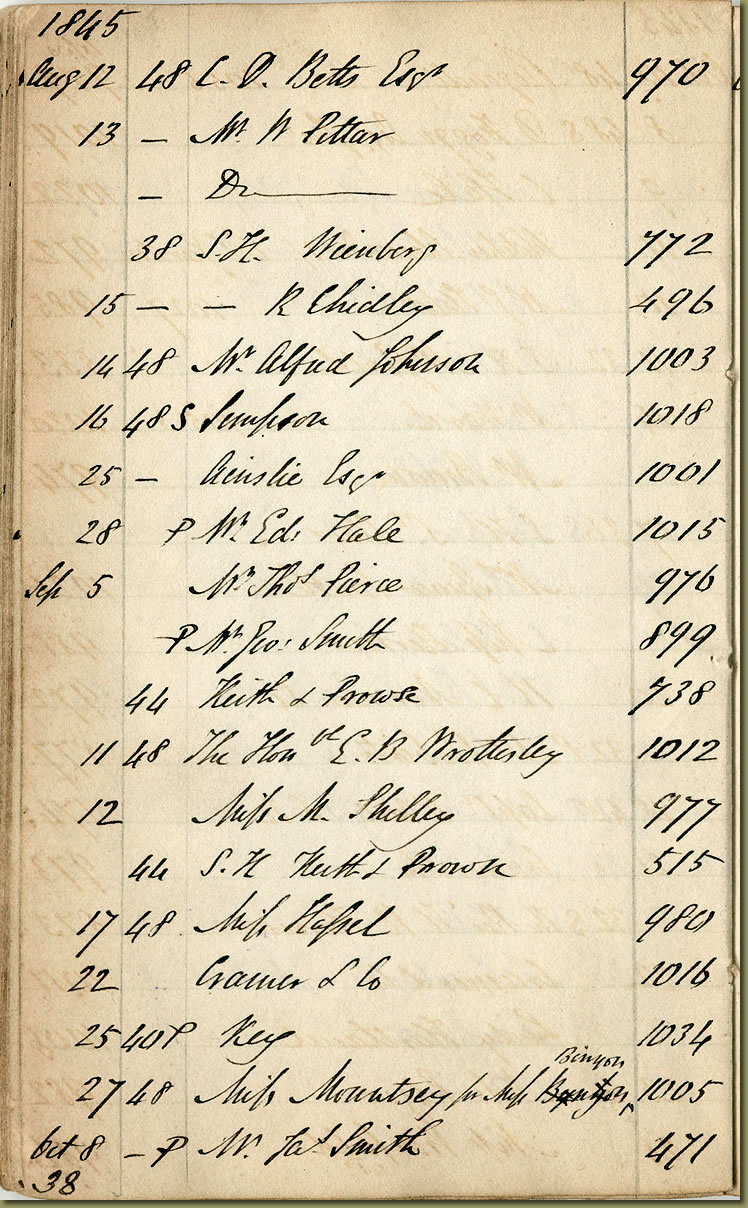 1845
Aug 12 48 C. D. Betts Esqr 970
13 — Mr. W Pittar
— Do
38 S.H. Wienberg 772
15 — — R Chidley 496
14 48 Mr. Alfred Johnson 1003
16 48 S Simpson 1018
25 — Ainslie Esqr 1001
28 P Mr. Ed: Hale 1015
Sep 5 Mr. Thos Pierce 976
P Mr. Geo: Smith 899
44 Keith & Prowse 738
11 48 The Honble E. B Wrottesley 1012
12 Miss M. Shelley 977
44 S. H Keith & Prowse 515
17 48 Miss Hassel 980
22 Cramer & Co 1016
25 40 P Key 1034
Binyon
27 48 Miss Mountsey for Miss 1005
Oct 8 — P Mr. Jas Smith 471
38